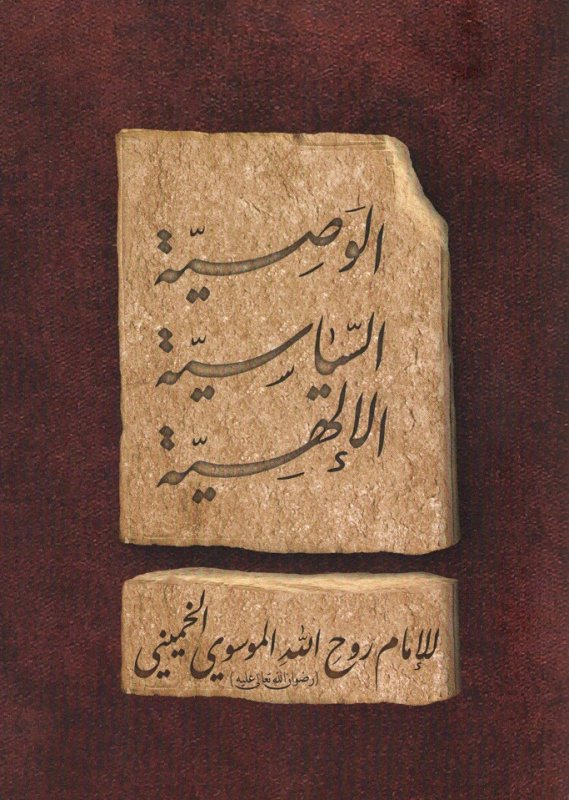 الوَصِيّة
السّياسيّة
الإلهِيّة
للإمام روح اللهِ الموسوي الخميني
(رضوان الله تعالى عليه)